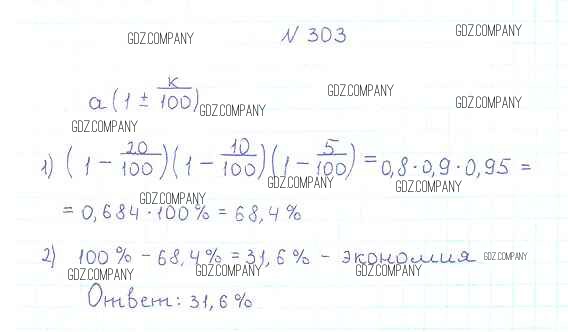 GDZ.COMPANY
N 303
GDZ.COMPANY
a(1 ± k/100)
GDZ.COMPANY
GDZ.COMPANY
GDZ.COMPANY
GDZ.COMPANY
1) (1 - 20/100)(1 - 10/100)(1 - 5/100) = 0,8·0,9·0,95 =
GDZ.COMPANY
GDZ.COMPANY
GDZ.COMPANY
= 0,684·100% = 68,4%
2) 100% - 68,4% = 31,6% - экономия
GDZ.COMPANY
GDZ.COMPANY
GDZ.COMPANY
GDZ.COMPANY
Ответ: 31,6%